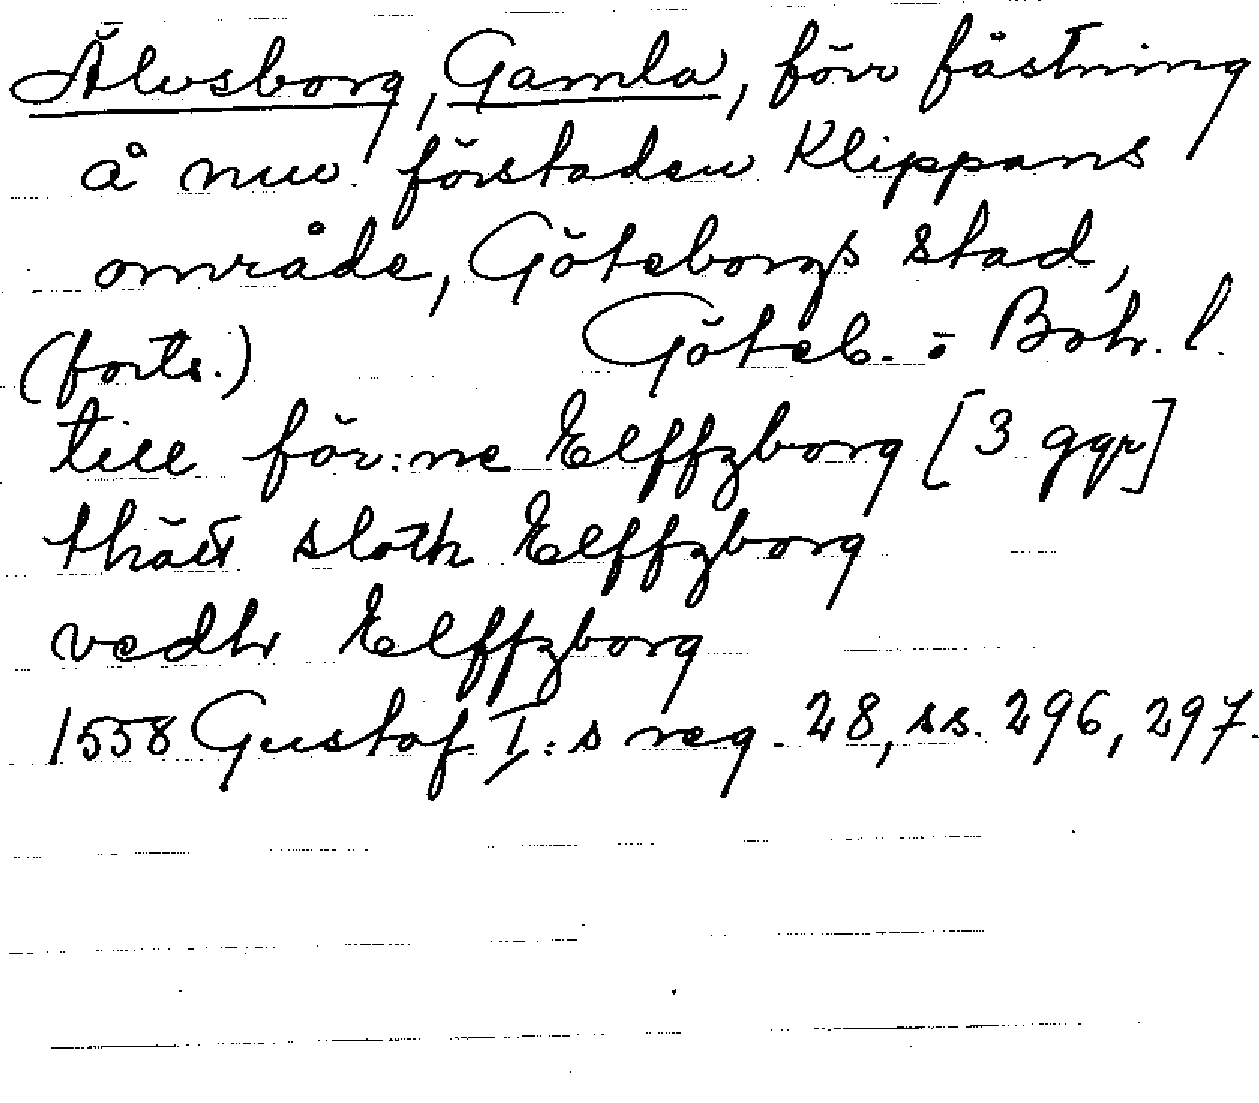 Älvsborg, Gamla, förr fästning
å nuv. förstaden Klippans
område, Göteborgs stad,
(forts.) Göteb. o Boh. l.
till för:ne Elffzborg [3 ggr]
thätt sloth Elffzborg
vedh Elffzborg
1558 Gustaf I:s reg. 28, ss. 296, 297.